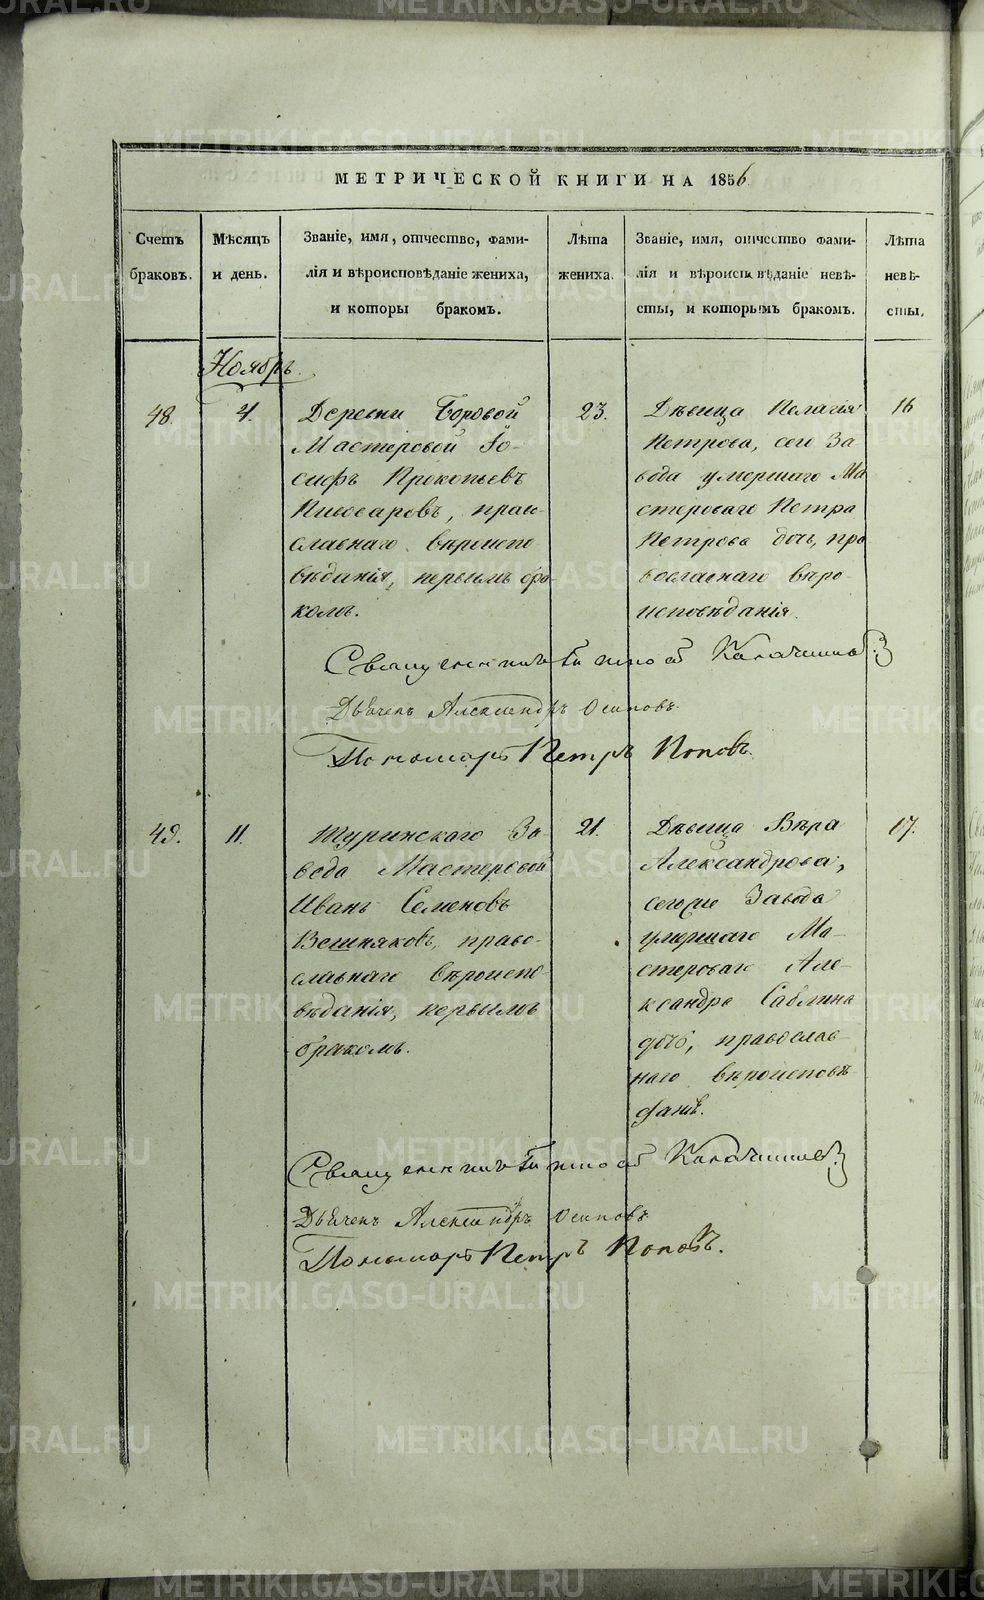 METRIKI.GASO-URAL.RU
МЕТРИЧЕСКОЙ КНИГИ НА 1856
Счетъ браковъ.
Мѣсяцъ и день.
Званіе, имя, отчество, фами-
лія и вѣроисповѣданіе жениха,
и которы бракомъ.
Лѣта жениха.
Званіе, имя, отчество фами-
лія и вѣроиспвѣданіе невѣ-
сты, и которымъ бракомъ.
Лѣта невѣ-
сты.
Ноябрь.
48.
4.
Деревни Боровой
Мастеровой Іо-
сифъ Прокопьевъ
Пивоваровъ, прав-
славнаго вѣроиспо-
вѣданія, первымъ бра-
комъ.
23.
Дѣвица Пелагія
Петрова, сего За
вода умершаго Ма
стероваго Петра
Петрова дочь, пра
вославнаго вѣро-
исповѣданія.
16
Священникъ
Дьячекъ Александръ Осиповъ.
Пономарь Петръ Поповъ.
49.
11.
Туринскаго За-
вода Мастеровой
Иванъ Семеновъ
Вешняковъ, право-
славнаго вѣроиспо-
вѣданія, первымъ
бракомъ.
21.
Дѣвица Вѣра
Александрова,
сегоже Завода
умершаго Ма-
стероваго Але-
ксандра Саблина
дочь, православ-
наго вѣроисповѣ-
данія.
17.
Священникъ
Дьячекъ Александръ Осиповъ
Пономарь Петръ Поповъ.